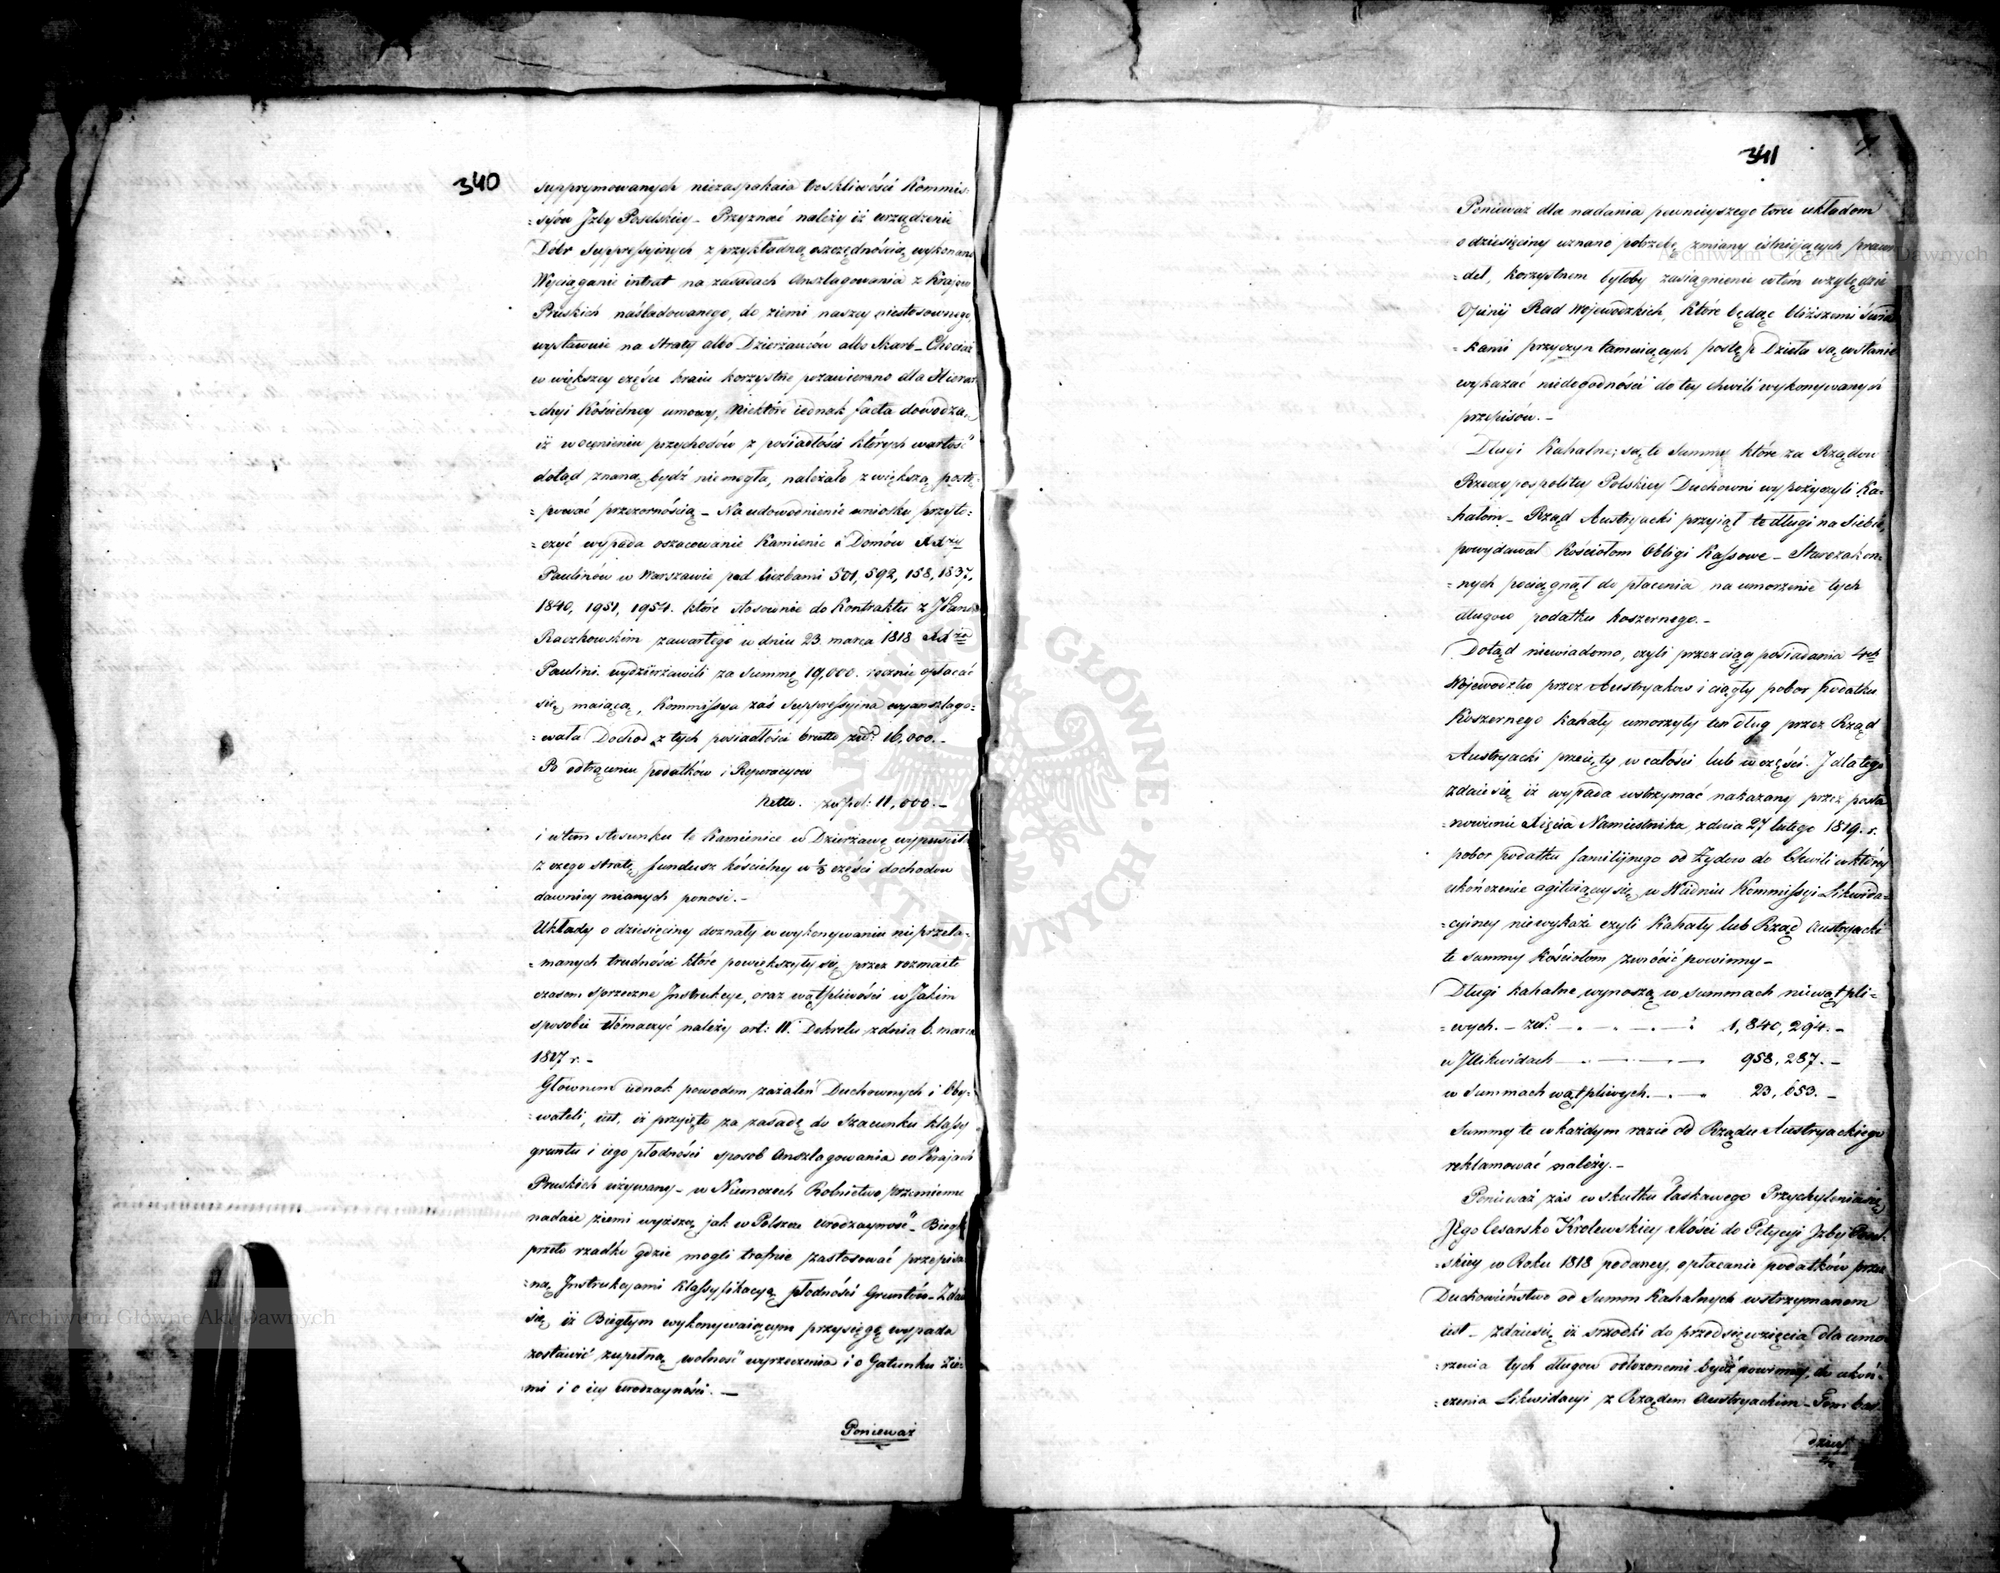 340
supprymowanych niezaspakaia troskliwości Kommis:
=syów Jzby Poselskiey – Przyznać należy iż urządzenie
Dóbr Suppressyjnych z przykładną oszczędnością wykonane
Wyciąganie intrat na zasadach Anszlagowania z Kraiow
Pruskich naśladowanego, do ziemi naszey niestosownego,
wystawuie na straty albo Dzierżawców albo Skarb – Chociaż
w większey części kraiu korzystne pozawierano dla Hierar
=chyi Kościelney umowy, niektóre iednak facta dowodzą,
iż w ocenieniu przychodów z posiadłości których wartość
dotąd znaną bydź niemogła, należało z większą postę:
=pować przezornością – Na udowodnienie wniosku przyto:
=czyć wypada oszacowanie Kamienic i Domów XXży
Paulinów w Warszawie pod liczbami 501, 592, 158, 1837,
1840, 1951, 1954. które stosownie do Kontraktu z JPanem
Raczkowskim zawartego w dniu 23. marca 1818 XXża
Paulini wydzierżawili za Summę 19,000. rocznie opłacać
się maiącą, Kommissya zaś Suppressyina wyanszlago:
=wała Dochod z tych posiadłości brutto złp. 16,000. –
Po odtrąceniu podatków i Reperacyow
Netto. złp: 11,000. –
i w tem stosunku te Kamienice w Dzierżawę wypuściła
z czego stratę fundusz kościelny w 1/3 części dochodow
dawniey mianych ponosi. –
Układy o dziesięciny doznały w wykonywaniu nieprzeła:
=manych trudności które powiększyły się przez rozmaite
czasem sprzeczne Jnstrukcye, oraz wątpliwości w Jakim
sposobie tłómaczyć należy art: II. Dekretu z dnia 6. marca
1817 r. –
Głównem iednak powodem zażaleń Duchownych i Oby:
=wateli, iest, iż przyięto za zasadę do Szacunku klassy
gruntu i iego płodności sposob Anszlagowania w Kraiach
Pruskich używany – w Niemczech Rolnictwo przemienne
nadaie ziemi wyższą jak w Polszcze urodzayność – Biegli
przeto rzadko gdzie mogli trafnie zastosować przepisa
=ną Jnstrukcyami klassyfikacyą płodności Gruntów – Zdaie
się iż Biegłym wykonywaiącym przysięgę wypada
zostawić zupełną wolność wyrzeczenia i o Gatunku Zie:
mi i o iey urodzayności. –
Ponieważ
341
Ponieważ dla nadania pewnieyszego toru układom
o dziesięciny uznano potrzebę zmiany istniejących prawi
=deł, korzystnem byłoby zasiągnienie w tem względzie
Opinij Rad Wojewodzkich, które będąc bliższemi świa
=kami przyczyn tamuiących postęp Dzieła są w stanie
wykazać niedogodności do tey chwili wykonywanych
przepisów. –
Długi Kahalne; są te Summy które za Rządow
Rzeczypospolitey Polskiey Duchowni wypożyczyli Ka:
=hałom – Rząd Austryacki przyiął te długi na Siebie,
powydawał Kościołom Obligi Kassowe – Starozakon:
=nych pociągnął do płacenia na umorzenie tych
długow podatku koszernego. –
Dotąd niewiadomo, czyli przez ciąg posiadania 4ch
Wojewodztw przez Austryakow i ciągły pobor podatku
Koszernego kahały umorzyły ten dług przez Rząd
Austryacki przeięty w całości lub w części. J dlatego
zdaie się iż wypada wstrzymać nakazany przez posta
=nowienie Xięcia Namiestnika, z dnia 27 lutego 1819. r.
pobor podatku familijnego od Żydow do Chwili w którey
ukończenie agituiącey się w Wiedniu Kommissyi Likwida=
=cyiney niewykaże czyli Kahały lub Rząd Austryacki
te summy Kościołom zwrócić powinny –
Długi kahalne wynoszą w summach niewątpli=
=wych. – złp. – . – . – . – : 1,840,294. –
w Jllikwidach – . – . – 958,287. –
w Summach wątpliwych. – . – 23,653. –
Summy te w każdym razie od Rządu Austryackiego
reklamować należy. –
Ponieważ zas w skutku łaskawego Przychylenia się
Jego Cesarsko Krolewskiey Mości do Petycyi Jzby Posel:
=skiey w Roku 1818 podaney, opłacanie podatków przez
Duchowieństwo od Summ Kahalnych wstrzymanem
iest – zdaie się iż srzodki do przedsięwzięcia dla umo
=rzenia tych długow odłożonemi bydź powinny, do ukoń:
=czenia Likwidacyi z Rządem Austryackim – Tem bar
dziey
Archiwum Główne Akt Dawnych
Archiwum Główne Akt Dawnych
ARCHIWUM GŁÓWNE AKT DAWNYCH